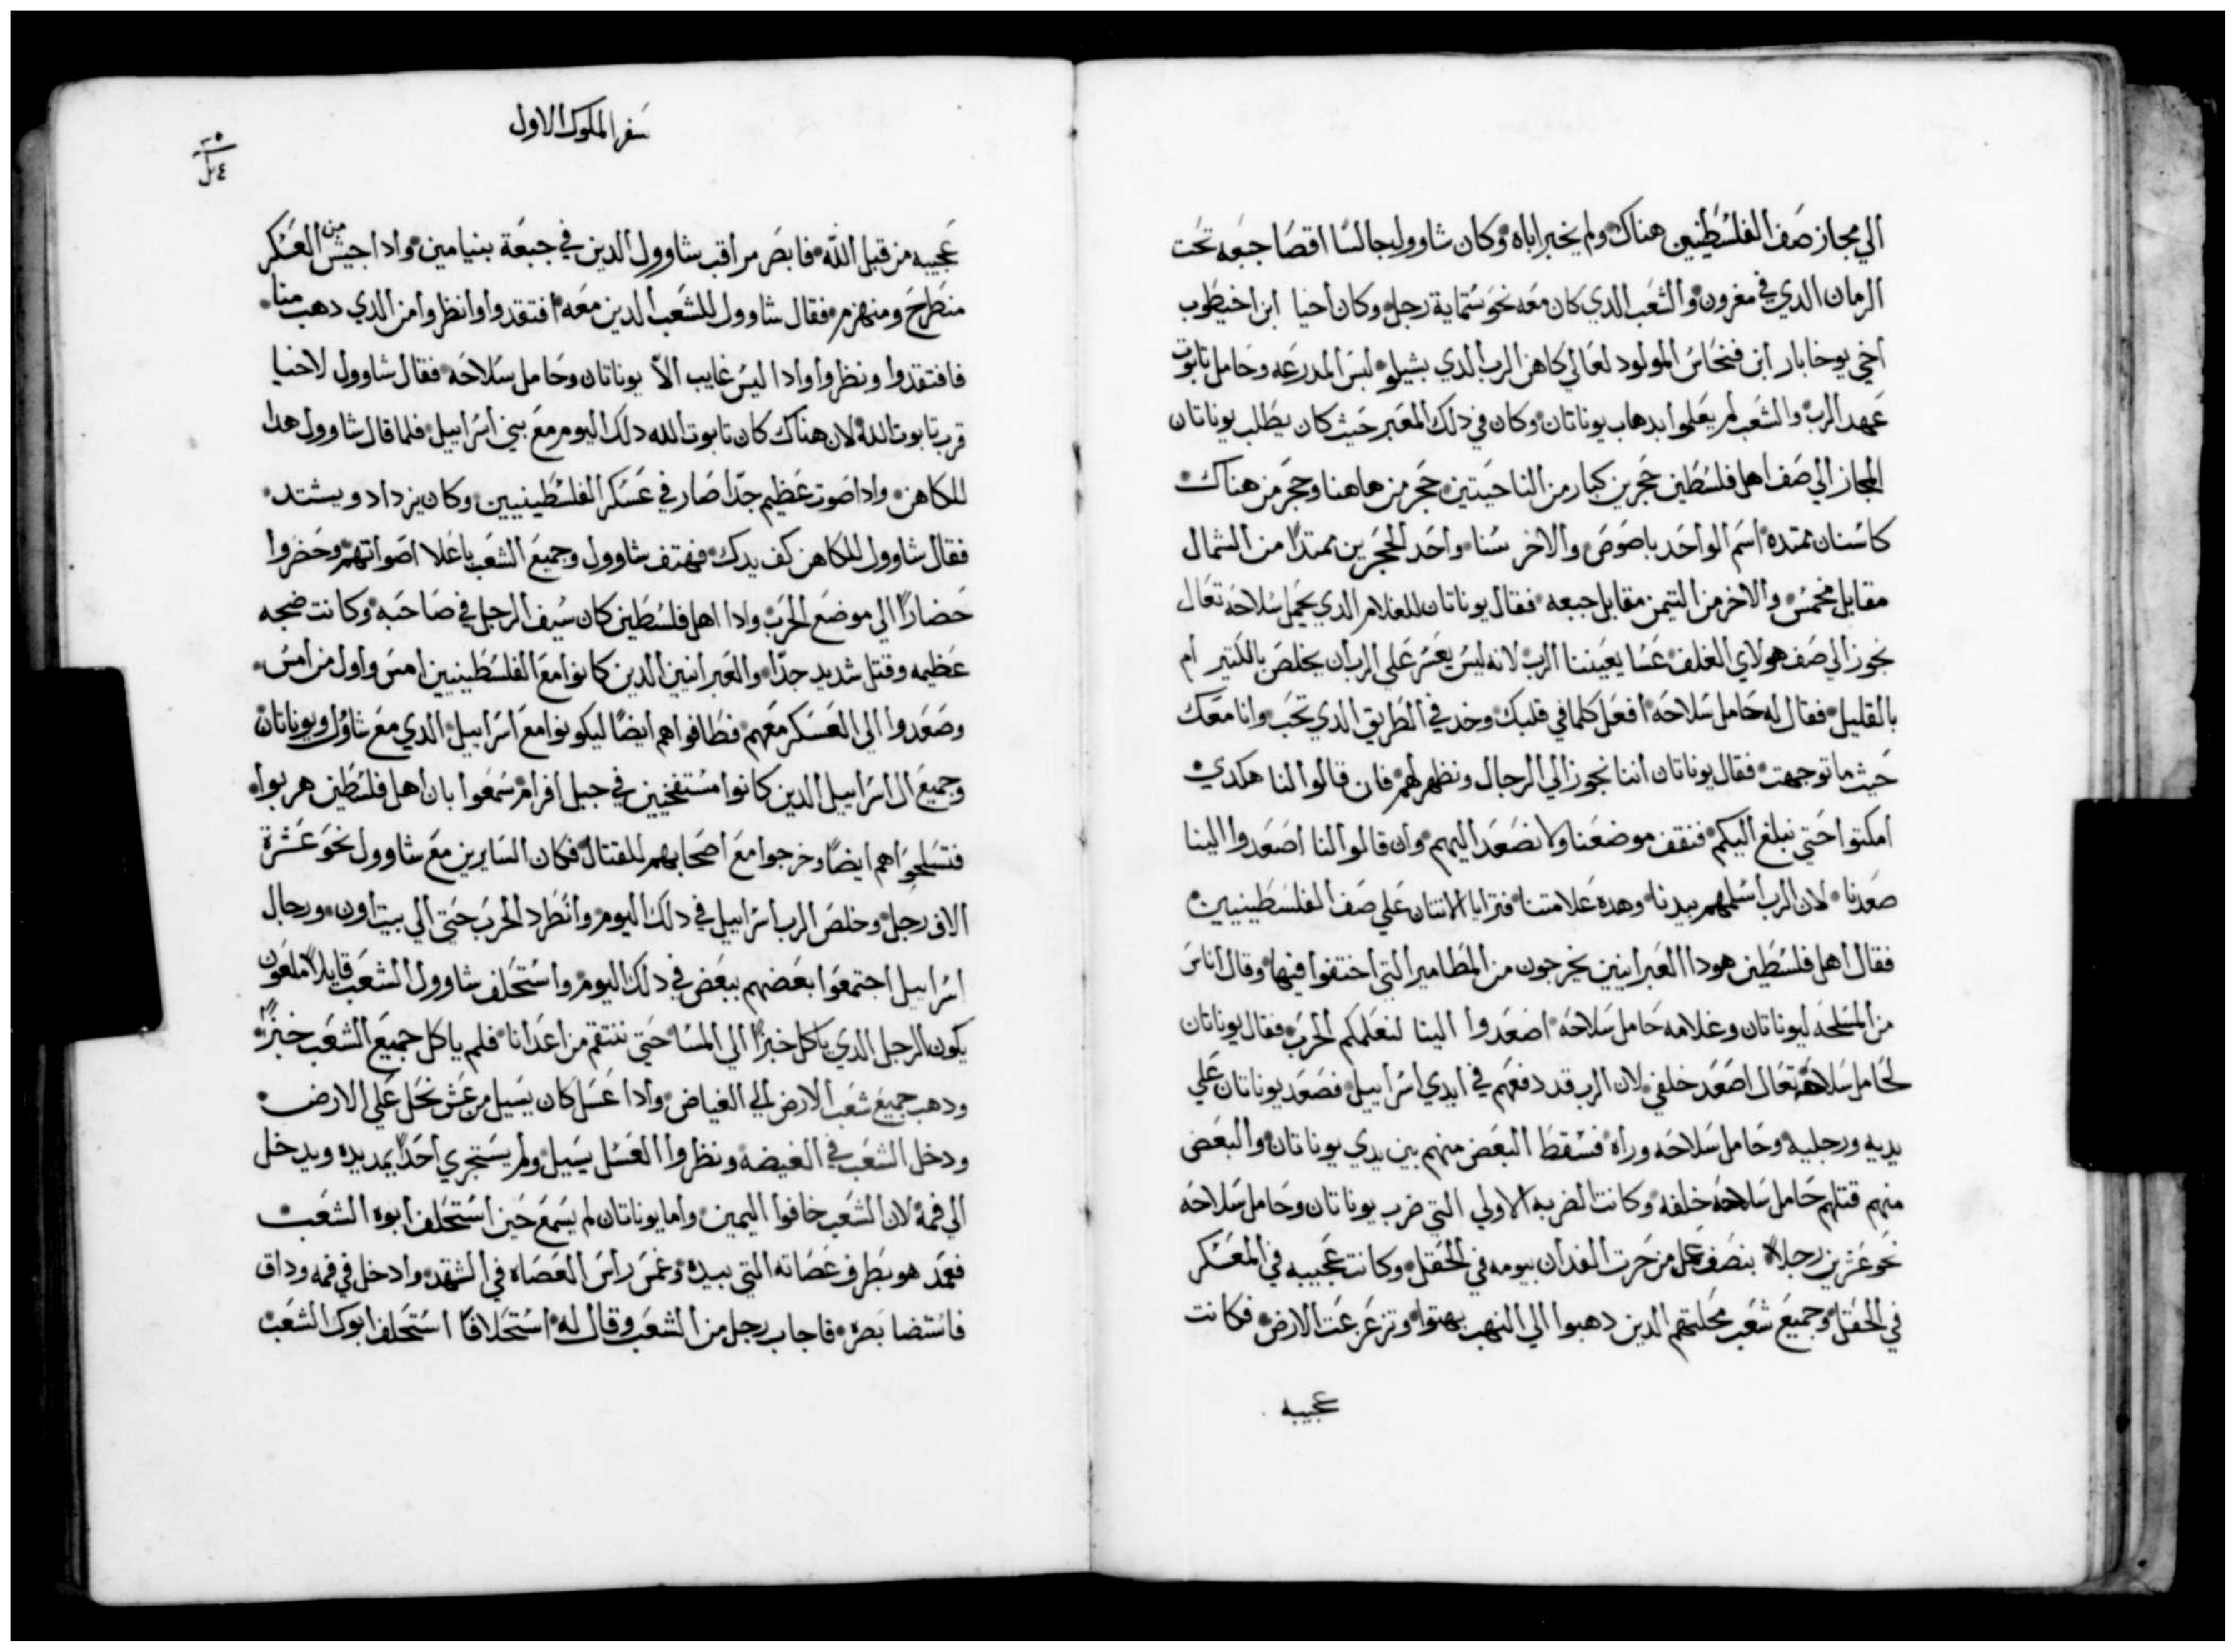 الي مجاز صف الفلسطينين هناك ولم يخبر اباه وكان شاوول جالسًا اقصا جبعه تحت
الرمان الدي في مغرون والشعب الدي كان معه نحو ستماية رجل وكان اخيا ابن اخيطوب
اخي يوخابار ابن فنحاس المولود لعالي كاهن الرب الدي بشيلو لبس المدرعه وحامل تابوت
عهد الرب والشعب لم يعلموا بدهاب يوناتان وكان في دلك المعبر حيث كان يطلب يوناتان
المجاز الي صف اهل فلسطين حجرين كبار من الناحيتين حجر من هاهنا وحجر من هناك
كاسنان ممتده اسم الواحد باصوص والاخر سنا واحد الحجرين ممتدًا من الشمال
مقابل مخمس والاخر من التيمن مقابل جبعه فقال يوناتان للغلام الدي يحمل سلاحه تعال
نجوز الي صف هولاي الغلف عسا يعيننا الرب لانه ليس يعسر علي الرب ان يخلص بالكتير ام
بالقليل فقال له حامل سلاحه افعل كلما في قلبك وخد في الطريق الدي تحب وانا معك
حيث ما توجهت فقال يوناتان اننا نجوز الي الرجال ونظهر لهم فان قالوا لنا هكدي
امكتوا حتي نبلغ اليكم فنقف موضعنا ولا نصعد اليهم وان قالوا لنا اصعدوا الينا
صعدنا لان الرب اسلمهم بيدنا وهده علامتنا فترايا الاتنان علي صف الفلسطينيين
فقال اهل فلسطين هودا العبرانيين يخرجون من المطامير التي اختفوا فيها وقال اناس
من المسلحه ليوناتان وغلامه حامل سلاحه اصعدوا الينا لنعلمكم الحرب فقال يوناتان
لحامل سلاحه تعال اصعد خلفي لان الرب قد دفعهم في ايدي اسراييل فصعد يوناتان علي
يديه ورجليه وحامل سلاحه وراه فسقط البعض منهم بين يدي يوناتان والبعض
منهم قتلهم حامل سلاحه خلفه وكانت الضربه الاولي التي ضرب يوناتان وحامل سلاحه
نحو عشرين رجلًا بنصف عمل من حرت الفدان بيومه في الحقل وكانت عجيبه في المعسكر
في الحقل وجميع شعب محلتهم الدين دهبوا الي النهب بهتوا وتزعزعت الارض فكانت
عجيبه
سفر الملوك الاول
عجيبه من قبل الله فابصر مراقب شاوول الدين في جبعة بنيامين وادا جيش من العسكر
منطرح ومنهزم فقال شاوول للشعب الدين معه افتقدوا وانظروا من الدي دهب منا
فافتقدوا ونظروا وادا ليس غايب الاّ يوناتان وحامل سلاحه فقال شاوول لاخيا
قرب تابوت الله لان هناك كان تابوت الله دلك اليوم مع بني اسراييل فلما قال شاوول هدا
للكاهن وادا صوت عظيم جدًا صار في عسكر الفلسطينيين وكان يزداد ويشتد
فقال شاوول للكاهن كف يدك فهتف شاوول وجميع الشعب باعلا اصواتهم وحضروا
حضارًا الي موضع الحرب وادا اهل فلسطين كان سيف الرجل في صاحبه وكانت ضجه
عظيمه وقتل شديد جدًا والعبرانيين الدين كانوا مع الفلسطينيين امس واول من امس
وصعدوا الي العسكر معهم فطافوا هم ايضًا ليكونوا مع اسراييل الدي مع شاؤل ويوناتان
وجميع ال اسراييل الدين كانوا مستفخيين في جبل افرام سمعوا بان اهل فلسطين هربوا
فتسلحوا هم ايضًا وخرجوا مع اصحابهم للقتال فكان السايرين مع شاوول نحو عشرة
الاف رجل وخلص الرب اسراييل في دلك اليوم وانطرد الحرب حتي الي بيت اون ورجال
اسراييل اجتمعوا بعضهم ببعض في دلك اليوم واستحلف شاوول الشعب قايلًا ملعون
يكون الرجل الدي ياكل خبزًا الي المسا حتي ننتقم من اعدانا فلم ياكل جميع الشعب خبزًا
ودهب جميع شعب الارض الي الغياض وادا عسل كان يسيل من عش نحل علي الارض
ودخل الشعب في الغيضه ونظروا العسل يسيل ولم يستجري احدًا يمد يده ويدخل
الي فمه لان الشعب خافوا اليمين واما يوناتان لم يسمع حين استحلف ابوه الشعب
فعمد هو بطرف عصاته التي بيده وغمس راس العصاه في الشهد وادخل في فمه وداق
فاستضا بصره فاجاب رجل من الشعب وقال له استحلافًا استحلف ابوك الشعب